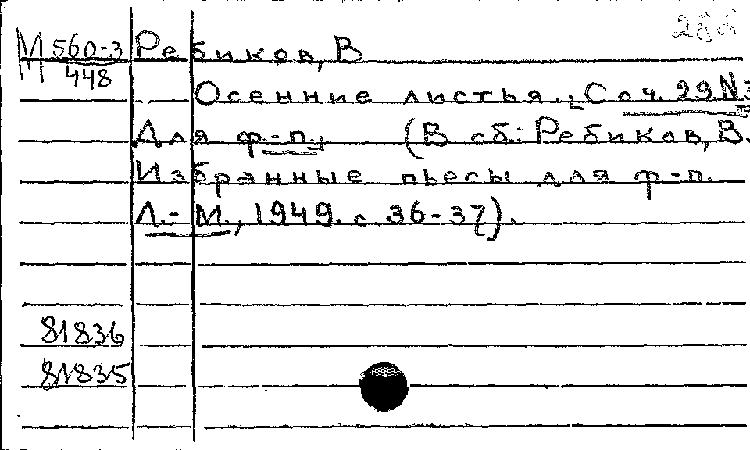 М 560-3 Ребиков, В
448
Осенние листья. [Соч. 29 №3
Для ф-п.] (В сб.: Ребиков, В.
Избранные пьесы для ф-п.
Л.-М., 1949. с 36-37).
81836
81835